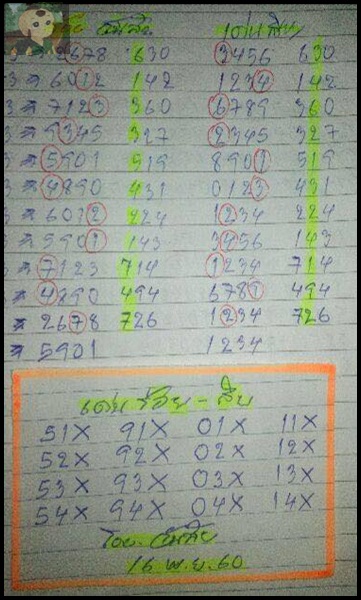 เด่นสิบ
3 → 2678 630 3456 630
3 → 6012 142 1234 142
3 → 7123 360 6789 360
3 → 9345 327 2345 327
3 → 5901 519 8901 519
3 → 4890 431 0123 431
→ 6012 224 1234 224
→ 5901 143 3456 143
→ 7123 714 1234 714
→ 4890 494 6789 494
→ 2678 726 1234 726
→ 5901 1234
เด่นร้อย - สิบ
51X 91X 01X 11X
52X 92X 02X 12X
53X 93X 03X 13X
54X 94X 04X 14X
โดย
16 พ.ย. 60